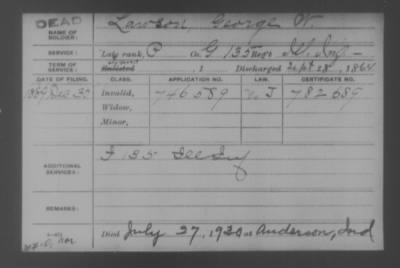 DEAD
NAME OF SOLDIER: Lawson, George W
SERVICE: Late rank, P Co. G 135 Reg't Ill. Inf.
TERM OF SERVICE: Enlisted , 1 Discharged Sept 28, 1864
DATE OF FILING. CLASS. APPLICATION NO. LAW. CERTIFICATE NO.
1889 Dec 30 Invalid, 746589 782689
Widow,
Minor,
ADDITIONAL SERVICES: F 135 Ill Inf
REMARKS:
Died July 27, 1930 at Anderson, Ind